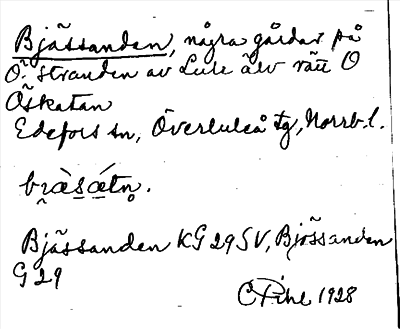 Bjässanden, några gårdar på
Ö. stranden av Lule älv rätt O
Öskatan
Edefors sn, Överluleå tg, Norrb. l.
Bjässanden KG 29 SV, Bjössanden
G 29
C Pihl 1928